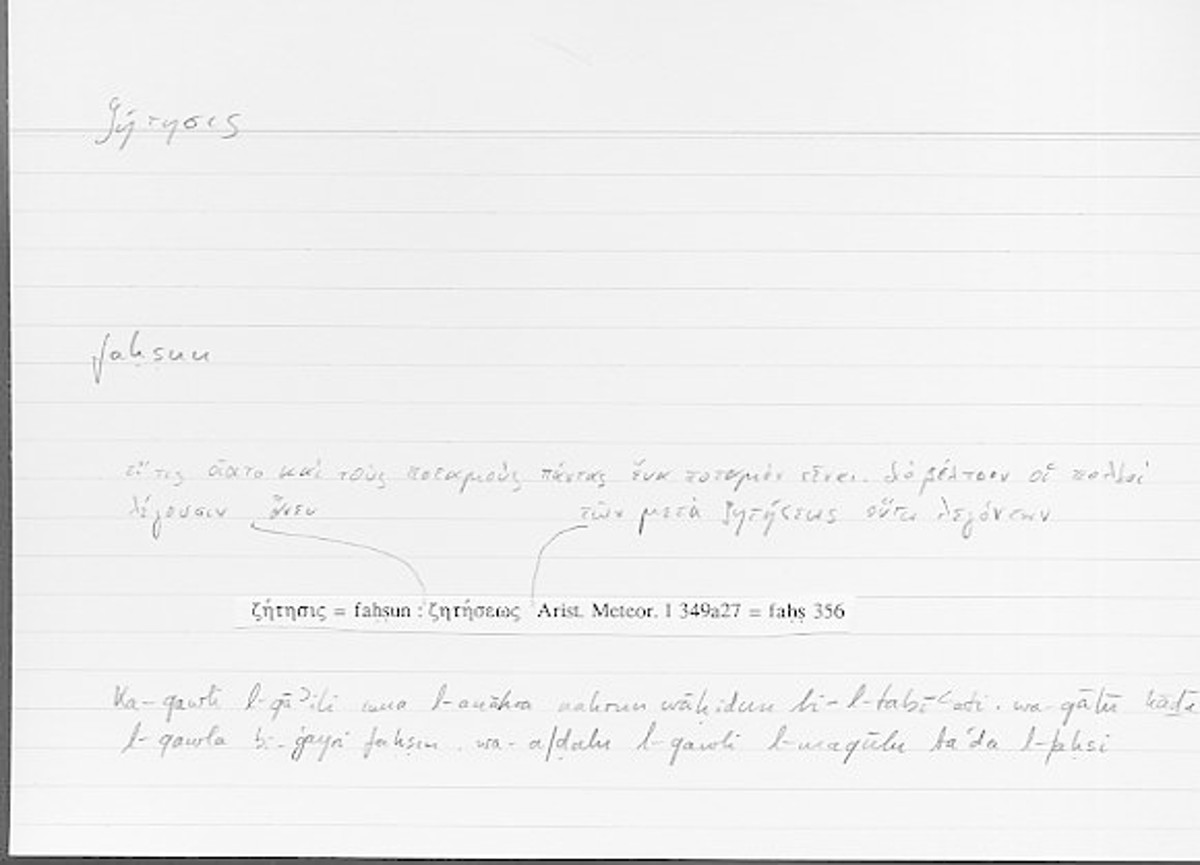 ζήτησις
faḥṣun
εἴ τις οἴοιτο καὶ τοὺς ποταμοὺς πάντας ἕνα ποταμὸν εἶναι. διὸ βέλτιον οἱ πολλοὶ
λέγουσιν ἄνευ τῶν μετὰ ζητήσεως οὕτω λεγόντων
ζήτησις = faḥṣun : ζητήσεως Arist. Meteor. I 349a27 = faḥṣ 356
Ka-qawli l-qāʾili inna l-anhāra nahrun wāḥidun bi-l-ṭabīʿati. wa-qālū hāḏā
l-qawla bi-ġayri faḥṣin. wa-afḍalu l-qawli l-maqūlu baʿda l-faḥṣi